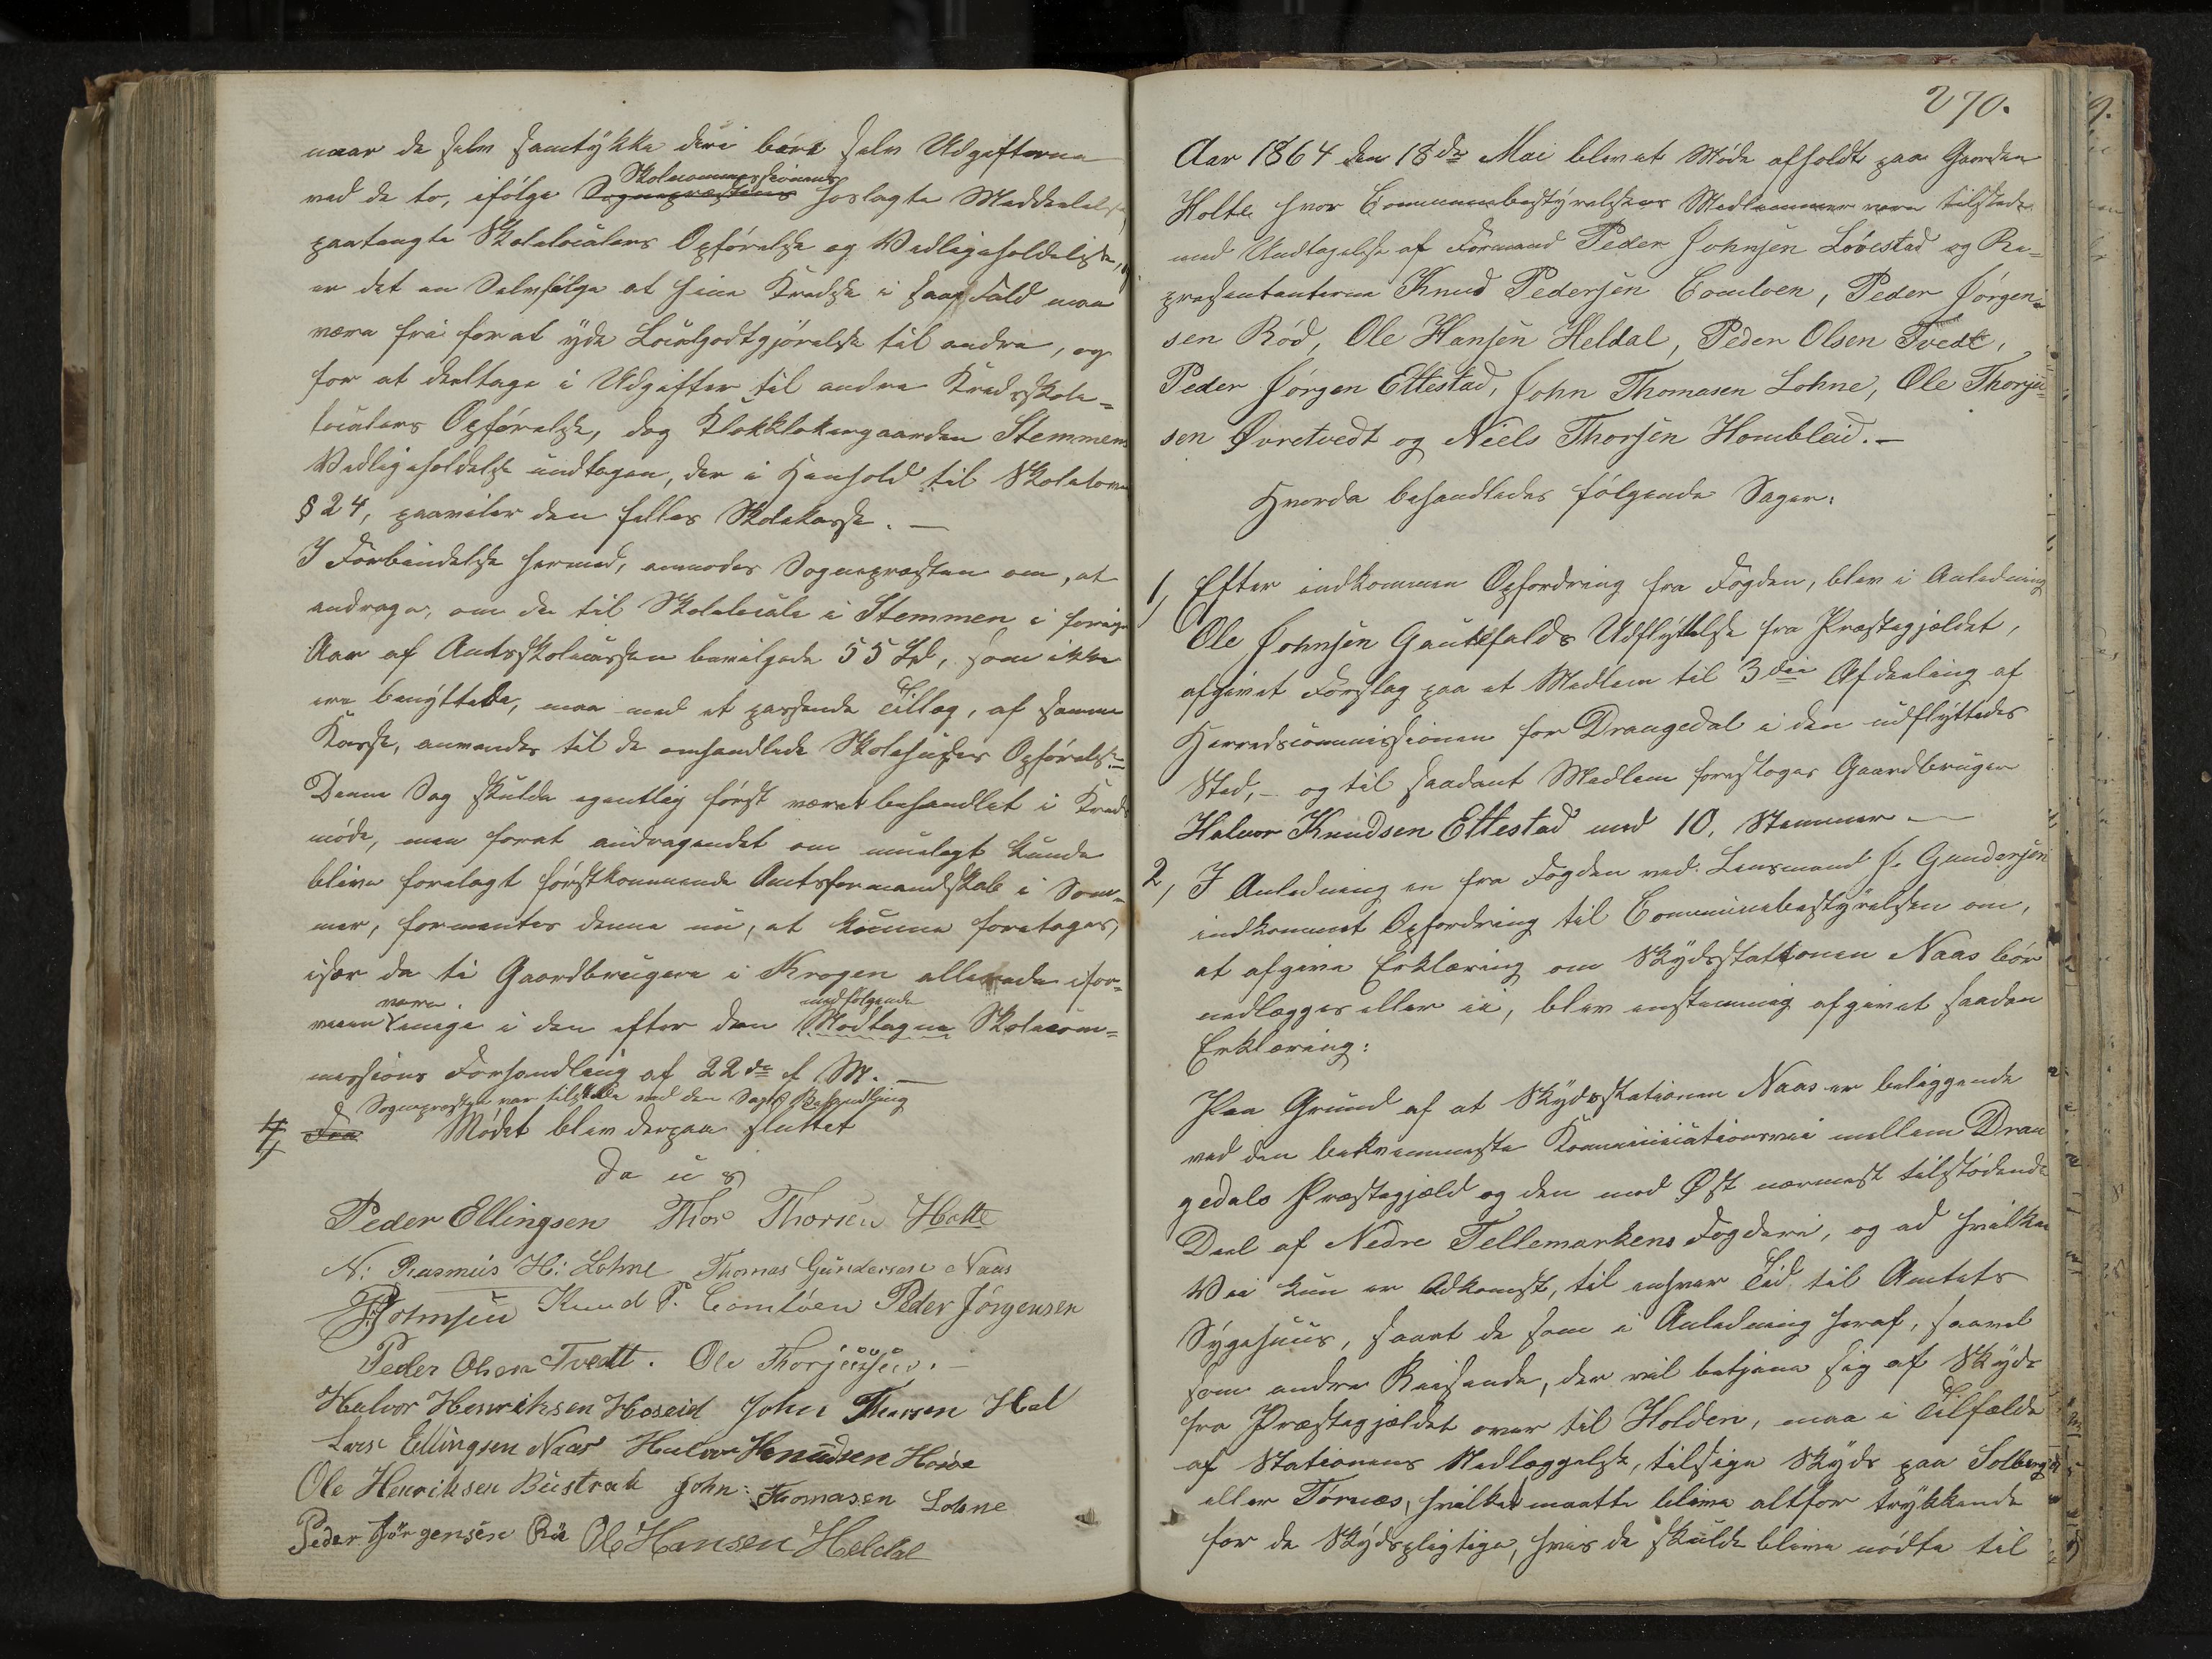 naar de selv samtykke deri bære selv Udgifterne
ved de to, ifølge Sognepræstens Skolecommissionens hoslagte Meddelelse,
paatengte Skolelocalers Opførelse og Vedligeholdelse,
er det en Selvfølge at hine Kredse i saa Fald maa
være fri for at yde Localgodtgjørelse til andre, og
for at deeltage i Udgifter til andre Kredsskole=
localers Opførelse, dog Klokkergaarden Stemmens
Vedligeholdelse undtagen, der i Henhold til Skoleloven
§ 24, paaviler den felles Skolekasse. —
I Forbindelse hermed, anmodes Sognepræsten om, at
andrage, om de til Skolelocale i Stemmen i forrige
Aar af Amtsskolecassen bevilgede 55 Spd, som ikke
ere benyttede, maa med et passende Tillæg, af samme
Kasse, anvendes til de omhandlede Skolehuses Opførelse.—
Denne Sag skulde egentlig først været behandlet i Kreds
møde, men forat andragendet om muelegt kunde
blive forelagt førstkommende Amtsformandskab i Som=
mer, formentes denne nu, at kunne foretages,
især da ti Gaardbrugere i Krogen allerede ifor=
veien vare enige i den efter den medfølgende Modtagne Skolecom=
missions Forhandling af 22de f. M. —
Sognepræsten var tilstede ved den Sags Behandling
4, Fra Mødet blev derpaa sluttet
Da u s
Peder Ellingsen Thor Thorsen Holte
N. Rasmus H. Lohne Thomas Gundersen Naas
P Johnsen Knud P. Comloen Peder Jörgensen
Peder Olsen Tvedt. Ole Thorjussen.
Halvor Henriksen Hoseid John Thorsen Hal
Lars Ellingsen Naas Halvor Knudsen
Ole Henriksen Bustrak John Thomasen Lohne
Peder Jörgensen Ole Hansen Heldal
270.
Aar 1864 den 18de Mai blev et Møde afholdt paa Gaarden
Holte hvor Communebestyrelsens Medlemmer vare tilstede
med Undtagelse af Formand Peder Johnsen Løvestad og Re=
presentanterne Knud Pedersen Comloen, Peder Jørgen=
sen Rød, Ole Hansen Heldal, Peder Olsen Tvedt,
Peder Jørgen Ettestad, John Thomasen Lohne, Ole Thorju=
sen Øvretvedt og Niels Thorsen Hombleid. —
Hvorda behandledes følgende Sager:
1, Efter indkommen Opfordring fra Fogden, blev i Anledning
Ole Johnsen Gautefalds Udflyttelse fra Præstegjeldet,
afgivet Forslag paa et Medlem til 3die Afdeeling af
Herredscommissionen for Drangedal i den udflyttedes
Sted, – og til saadant Medlem foresloges Gaardbruger
Halvor Knudsen Ettestad med 10. Stemmer —
2, I Anledning en fra Fogden ved Lensmand J. Gundersen
indkommet Opfordring til Communebestyrelsen om,
at afgive Erklæring om Skydsstationen Naas bør
nedlægges eller ei, blev enstemmig afgivet saadan
Erklæring:
Paa Grund af at Skydsstationen Naas er beliggende
ved den bekvemmeste Kommunicationsvei mellem Dran
gedals Præstegjæld og den mod Øst nærmest tilstødende
Deel af Nedre Tellemarkens Fogderi, og ad hvilken
Vei kun er Adkomst, til enhver Tid til Amtets
Sygehuus, samt de som i Anledning heraf, saavel
som andre Reisende, der vil betjene sig af Skyds
fra Præstegjældet over til Holden, maa i Tilfælde
af Stationens Nedlæggelse, tilsige Skyds paa Solberg
eller Tørnes, hvilket maatte blive altfor trykkende
for de Skydspligtige, hvis de skulde blive nødte til